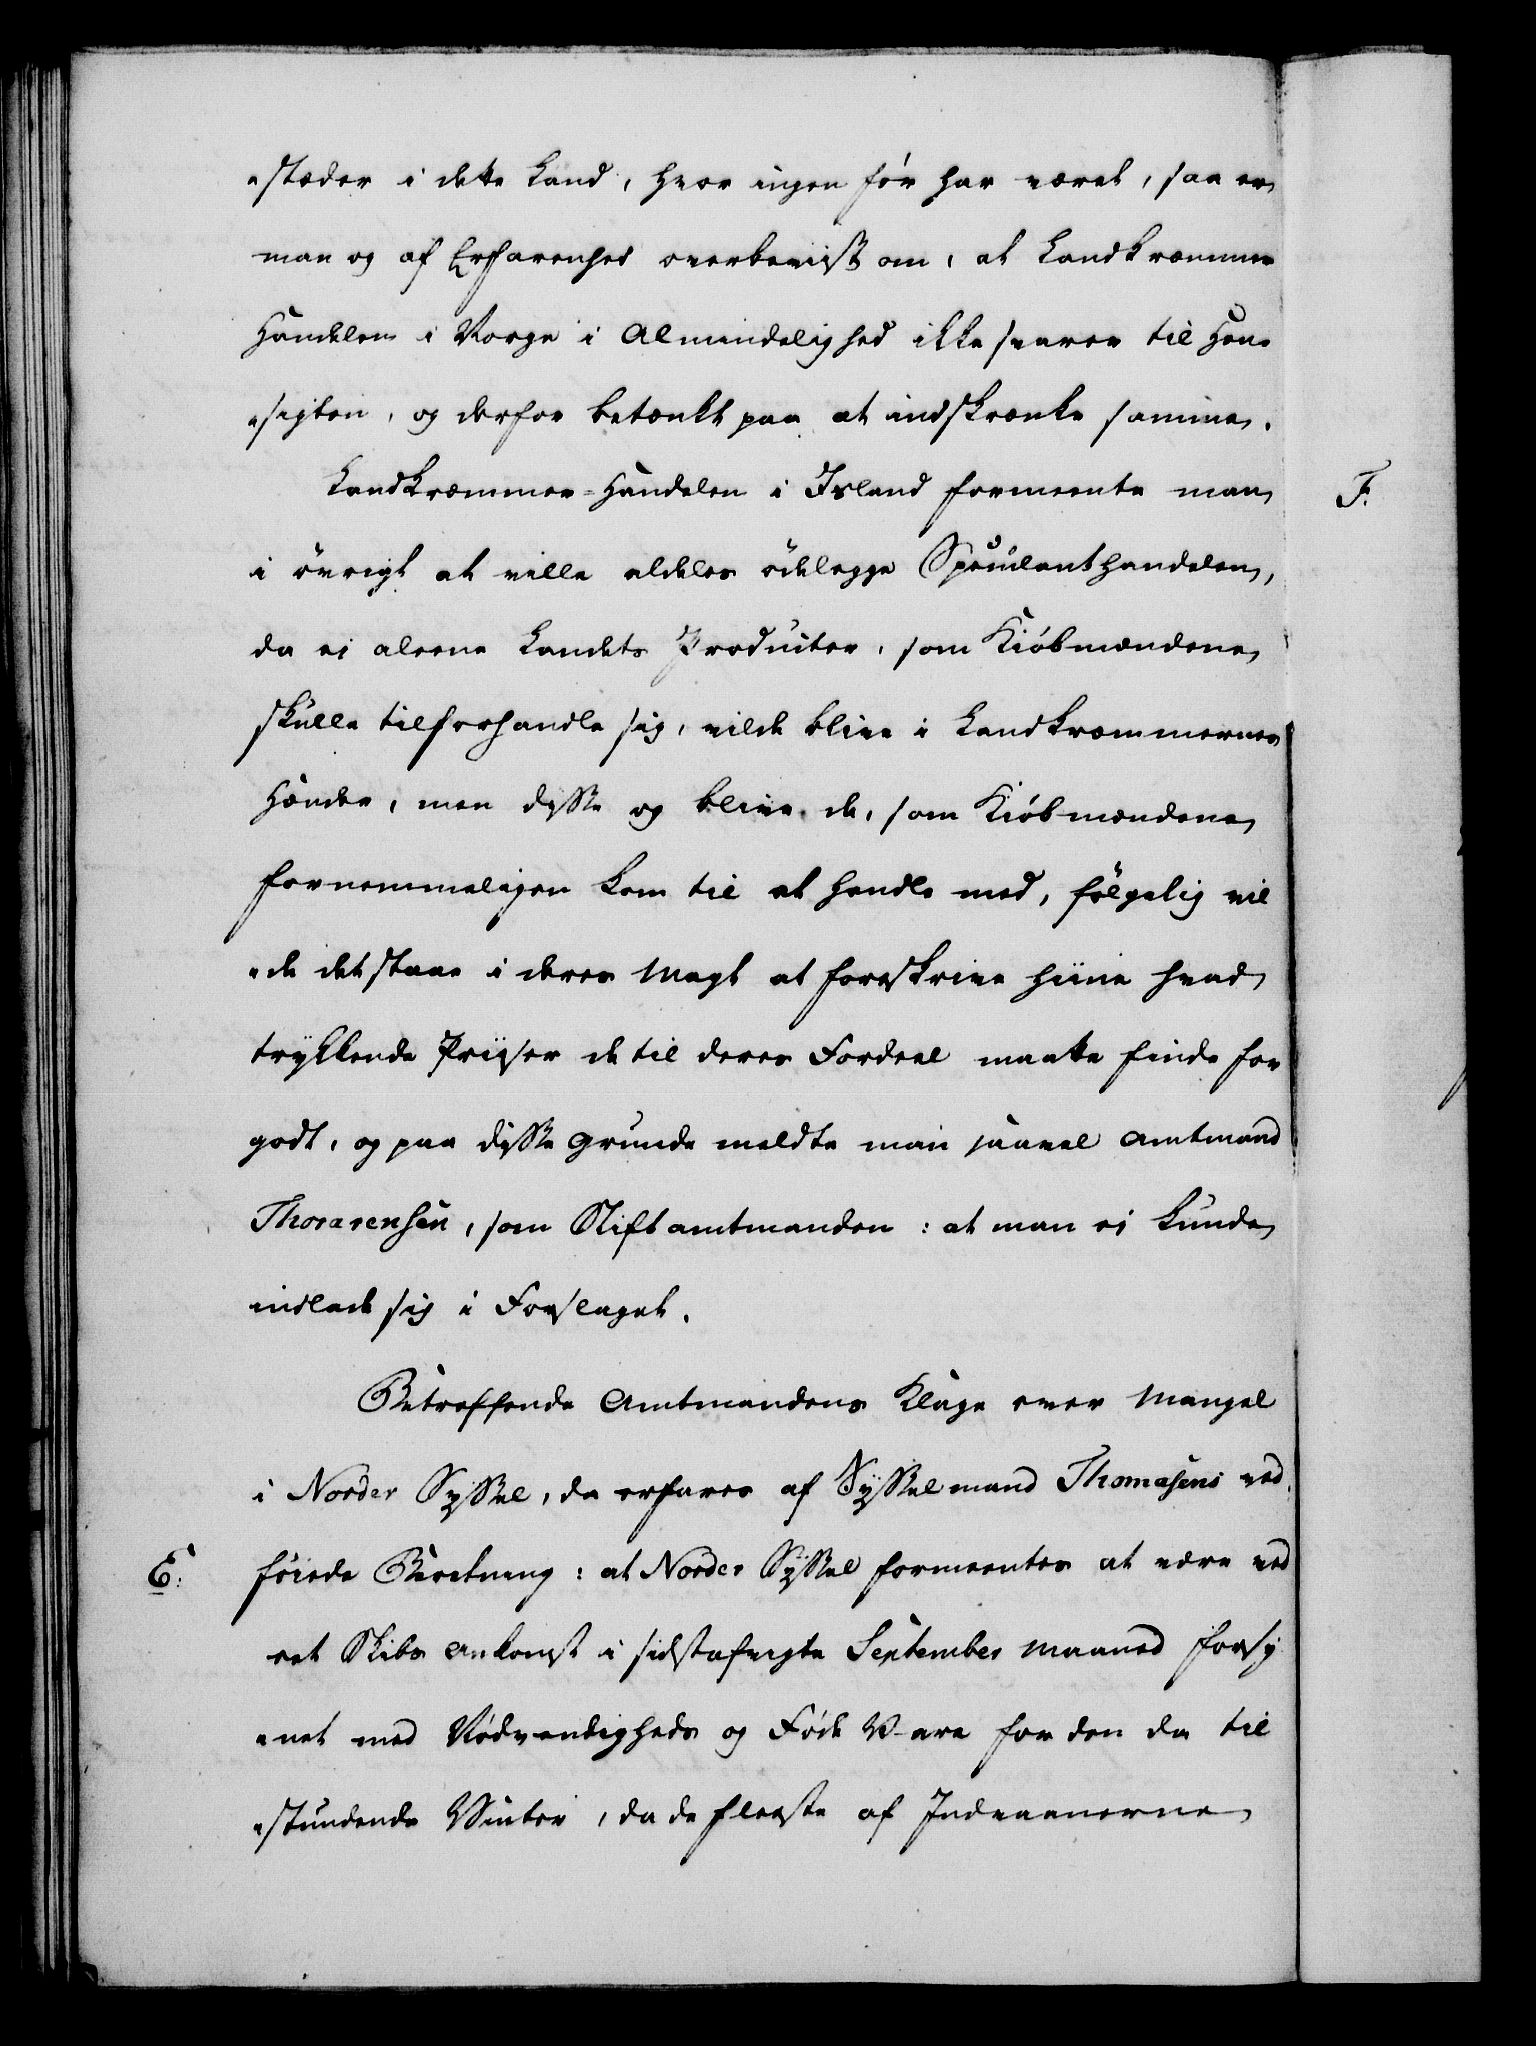 "stæder i dette Land, hvor ingen før har været, saa er
man og af Erfarenhed overbeviist om, at Landkræmmer
Handelen i Norge i Almindelighed ikke svarer til Hen-
"sigten, og derfor betænkt paa at indskrænke samme.
Landkræmmer-Handelen i Island formeente man
F.
i øvrigt at ville aldeles ødelegge Speculanthandelen,
da ei aleene Landets Producter, som Kiøbmændene
skulle tilforhandle sig, vilde blive i Landkræmmernes
Hænder, men disse og blive de, som Kiøbmændene
fornemmeligen kom til at handle med, følgelig vil
"de det staae i deres Magt at foreskrive hine hvad
trykkende Priiser de til deres Fordeel maatte finde for
godt, og paa disse Grunde meldte man saavel Amtmand
Thorarensen, som Stiftamtmanden: at man ei kunde
indlade sig i Forslaget.
Betreffende Amtmandens Klage over Mangel
i Norder Syssel, da erfares af Sysselmand Thomasens ved
E:
føiede Beretning: at Norder Syssel formeentes at være ved
eet Skibs Ankomst i sidstafvigte September Maaned forsy
"net med Nødvendigheds og Føde Vare for den da til
"stundende Vinter, da de fleeste af Indvaanerne